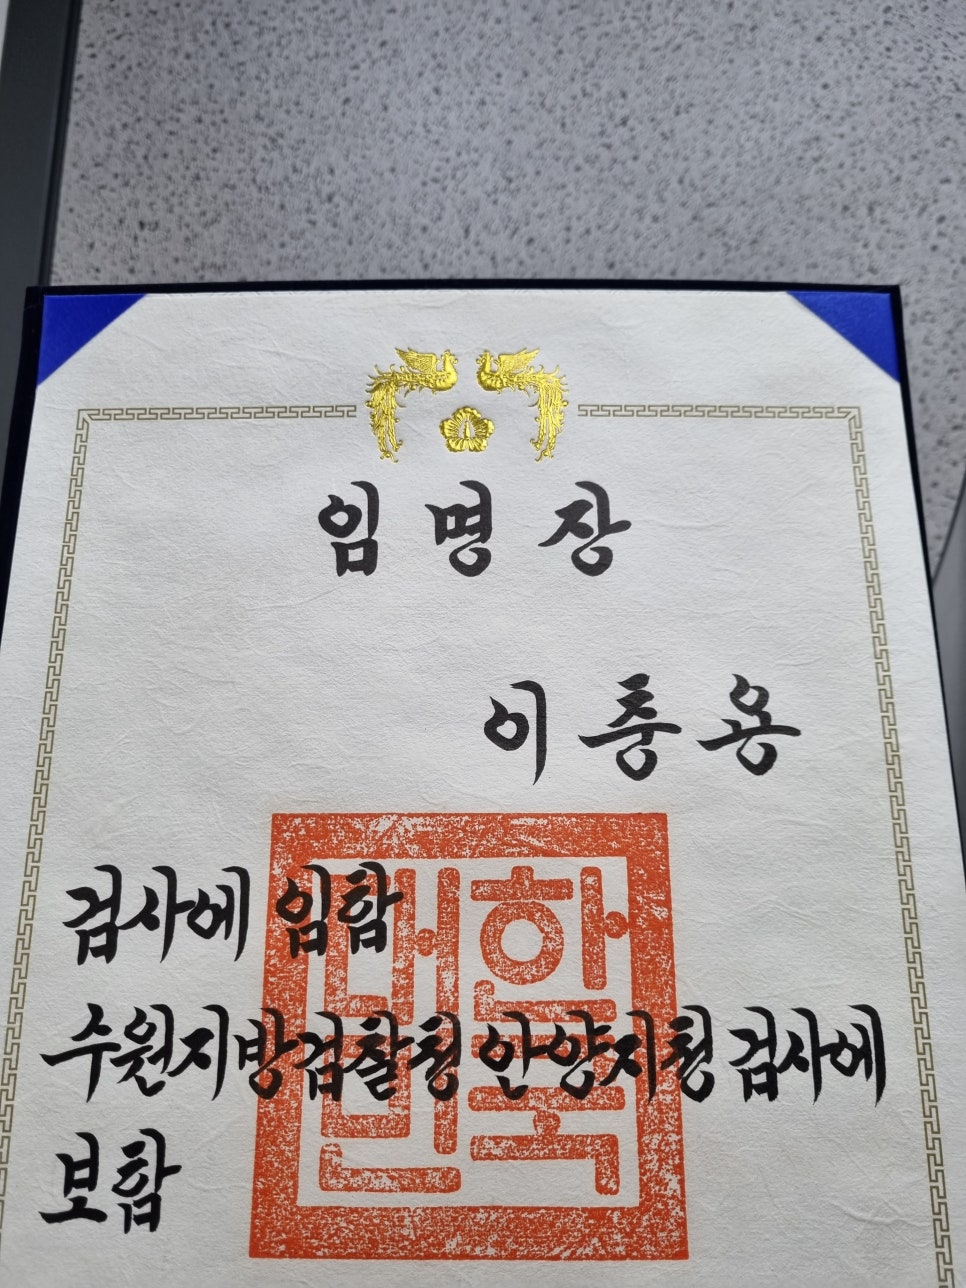 임명장
이중용
검사에 임함
수원지방검찰청 안양지청 검사에
보함
대한민국